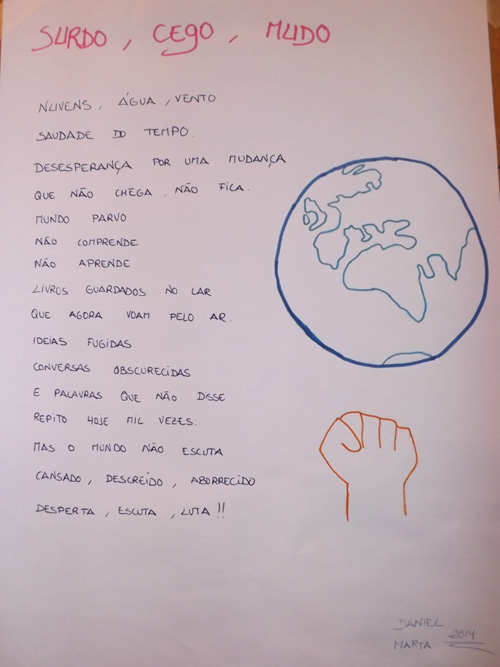 SURDO, CEGO, MUDO
NUVENS, ÁGUA, VENTO
SAUDADE DO TEMPO.
DESESPERANÇA POR UMA MUDANÇA
QUE NÃO CHEGA, NÃO FICA.
MUNDO PARVO
NÃO COMPREENDE
NÃO APRENDE
LIVROS GUARDADOS NO LAR
QUE AGORA VOAM PELO AR.
IDEIAS FUGIDAS
CONVERSAS OBSCURECIDAS
E PALAVRAS QUE NÃO DISSE
REPITO HOJE MIL VEZES.
MAS O MUNDO NÃO ESCUTA
CANSADO, DESCREÍDO, ABORRECIDO
DESPERTA, ESCUTA, LUTA!!
DANIEL
MARTA 2014